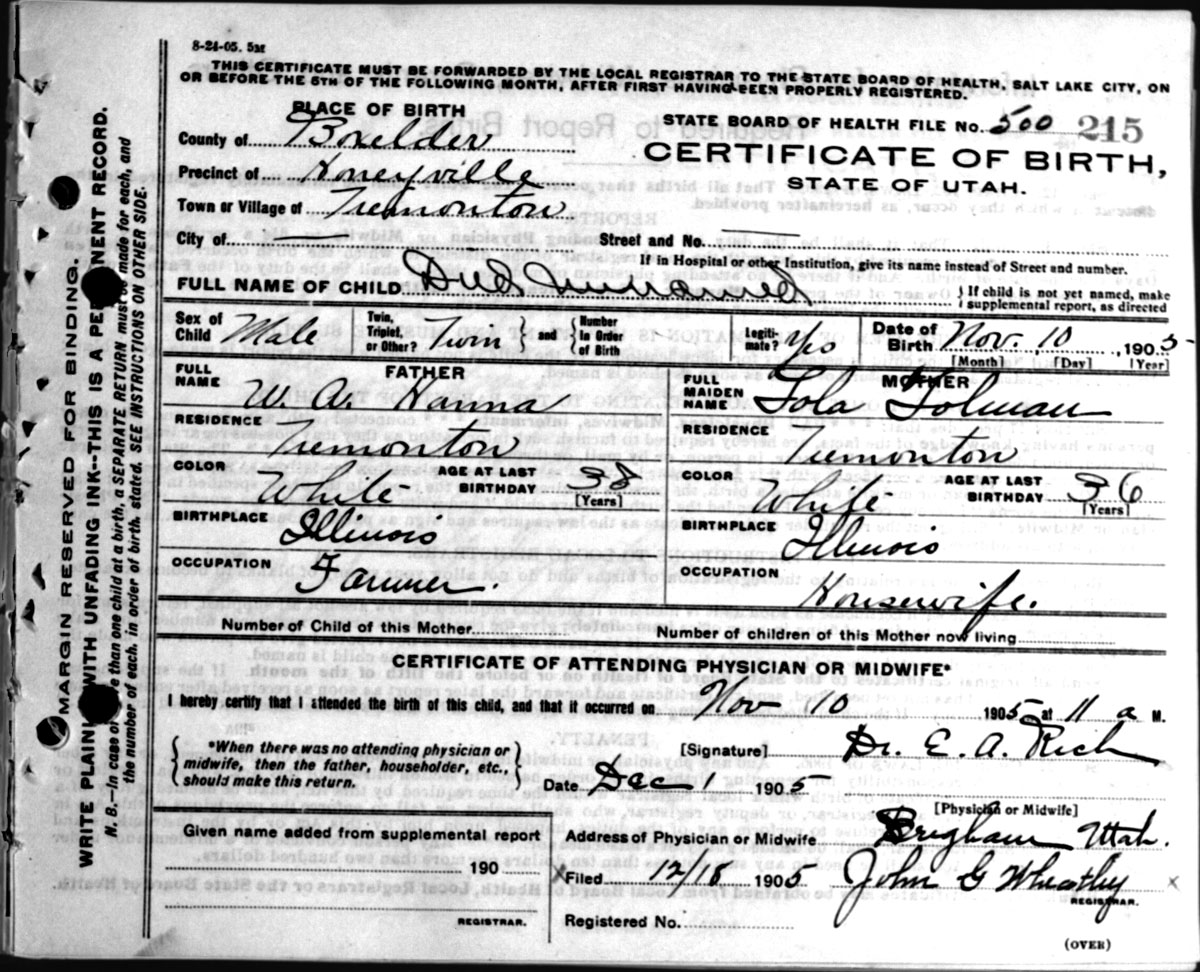 8-24-05. 5M
THIS CERTIFICATE MUST BE FORWARDED BY THE LOCAL REGISTRAR TO THE STATE BOARD OF HEALTH, SALT LAKE CITY, ON
OR BEFORE THE 5TH OF THE FOLLOWING MONTH, AFTER FIRST HAVING BEEN PROPERLY REGISTERED.
PLACE OF BIRTH
STATE BOARD OF HEALTH FILE No. 500 215
County of Boxelder
CERTIFICATE OF BIRTH,
STATE OF UTAH.
Precinct of Honeyville
Town or Village of Tremonton
City of Street and No.
If in Hospital or other Institution, give its name instead of Street and number.
FULL NAME OF CHILD Died, unnamed } If child is not yet named, make supplemental report, as directed
Sex of Child Male Twin, Triplet, or Other? Twin } and { Number in Order of Birth Legiti-mate? Yes Date of Birth Nov. 10, 1905
[Month] [Day] [Year]
FATHER
FULL NAME W. A. Hanna
RESIDENCE Tremonton
COLOR White AGE AT LAST BIRTHDAY 38 [Years]
BIRTHPLACE Illinois
OCCUPATION Farmer.
MOTHER
FULL MAIDEN NAME Lola Tolman
RESIDENCE Tremonton
COLOR White AGE AT LAST BIRTHDAY 36 [Years]
BIRTHPLACE Illinois
OCCUPATION Housewife.
Number of Child of this Mother Number of children of this Mother now living
CERTIFICATE OF ATTENDING PHYSICIAN OR MIDWIFE*
I hereby certify that I attended the birth of this child, and that it occurred on Nov 10 1905 at 11 a M.
{ *When there was no attending physician or
midwife, then the father, householder, etc.,
should make this return. }
[Signature] Dr. E. A. Rich
Date Dec 1 1905
[Physician or Midwife]
Given name added from supplemental report
190
REGISTRAR.
Address of Physician or Midwife Brigham Utah.
x Filed 12/18 1905 John G Wheatley x
REGISTRAR.
Registered No.
(OVER)
MARGIN RESERVED FOR BINDING.
WRITE PLAINLY WITH UNFADING INK--THIS IS A PERMANENT RECORD.
N. B.--In case of more than one child at a birth, a SEPARATE RETURN must be made for each, and
the number of each, in order of birth, stated. SEE INSTRUCTIONS ON OTHER SIDE.